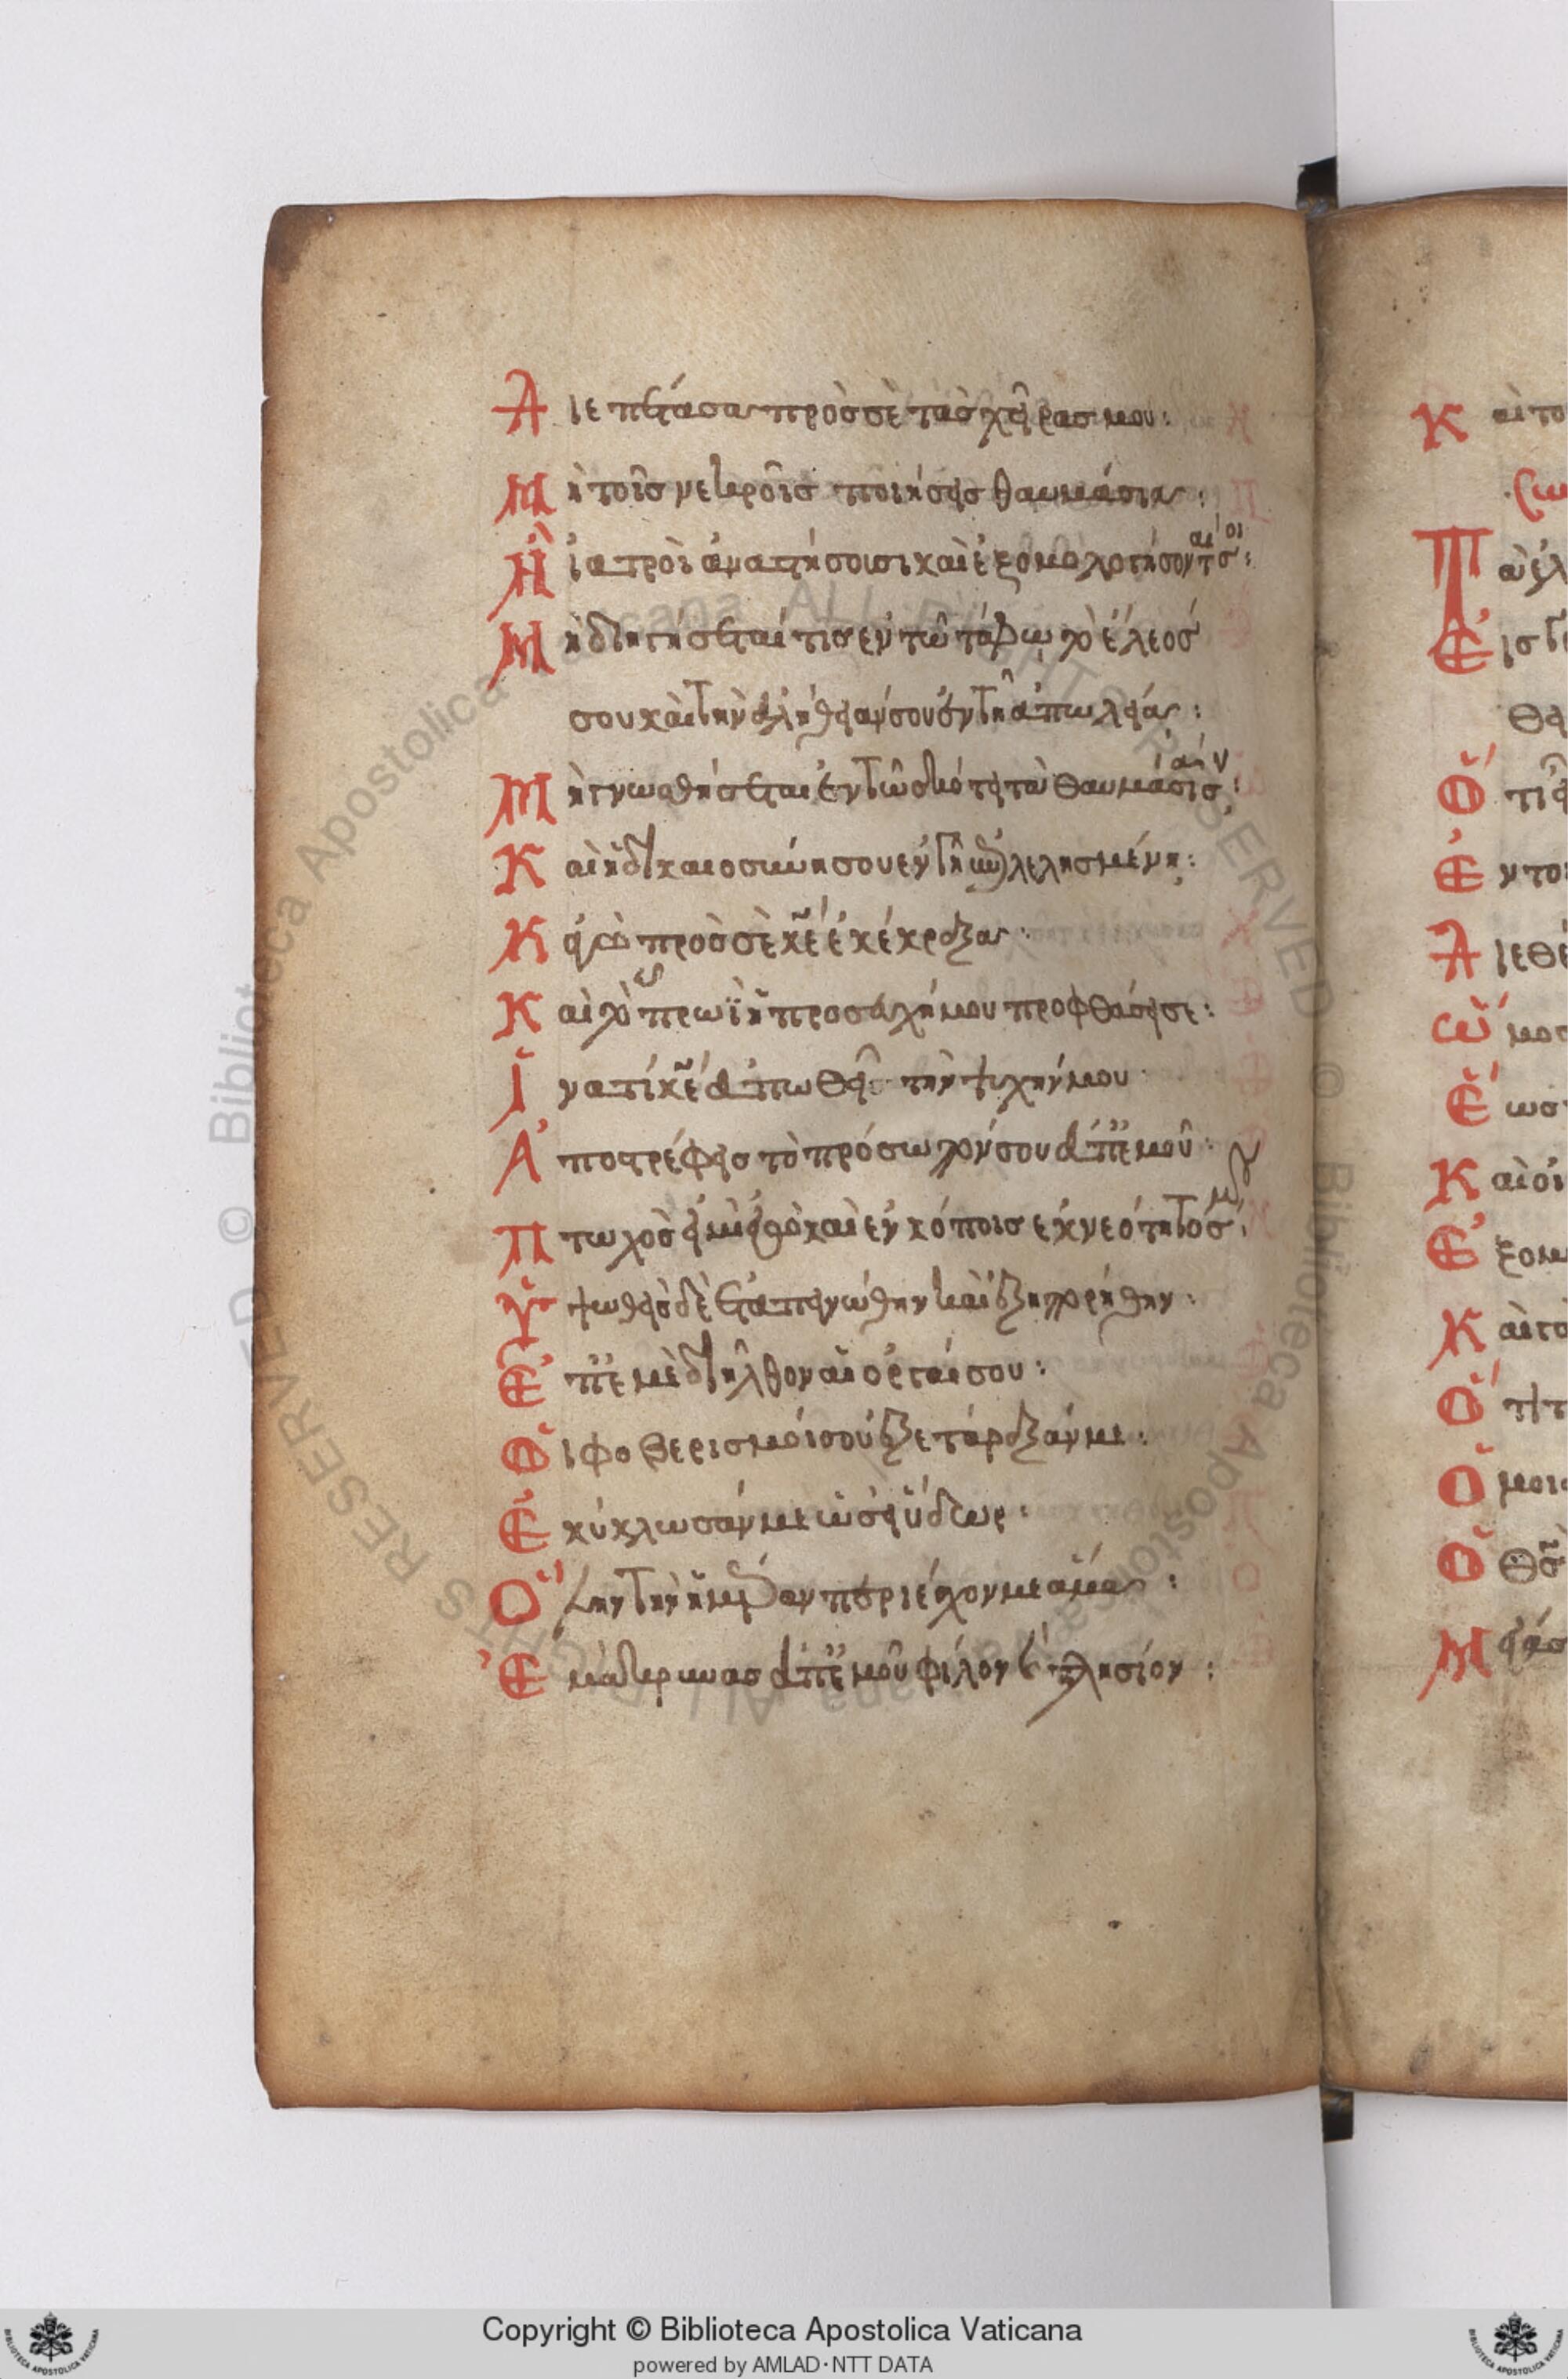 Διεπέτασα πρὸς σὲ τὰς χεῖρας μου:
Μὴ τοῖς νεκροῖς ποιήσεις θαυμάσια:
Ἢ ἰατροὶ ἀναστήσουσι καὶ ἐξομολογήσονταί σοι:
Μὴ διηγήσεταί τις ἐν τῷ τάφῳ τὸ ἔλεός
σου καὶ τὴν ἀλήθειάν σου ἐν τῇ ἀπωλείᾳ:
Μὴ γνωσθήσεται ἐν τῷ σκότει τὰ θαυμάσιά σου:
Καὶ ἡ δικαιοσύνη σου ἐν γῇ ἐπιλελησμένῃ:
Κἀγὼ πρὸς σὲ κε ἐκέκραξα:
Καὶ τὸ πρωῒ ἡ προσευχή μου προφθάσει σε:
Ἵνα τί κε ἀπωθεῖ τὴν ψυχήν μου
Ἀποστρέφεις τὸ πρόσωπόν σου ἀπ' ἐμοῦ:
Πτωχός εἰμι ἐγὼ καὶ ἐν κόποις ἐκ νεότητός μου:
Ὑψωθεὶς δὲ ἐταπεινώθην καὶ ἐξηπορήθην:
Ἐπ' ἐμὲ διῆλθον αἱ ὀργαί σου:
Οἱ φοβερισμοί σου ἐξετάραξάν με:
Ἐκύκλωσάν με ὡσεὶ ὕδωρ:
Ὅλην τὴν ἡμέραν περιέσχον με ἅμα:
Ἐμάκρυνας ἀπ' ἐμοῦ φίλον καὶ πλησίον:
Copyright © Biblioteca Apostolica Vaticana
powered by AMLAD·NTT DATA